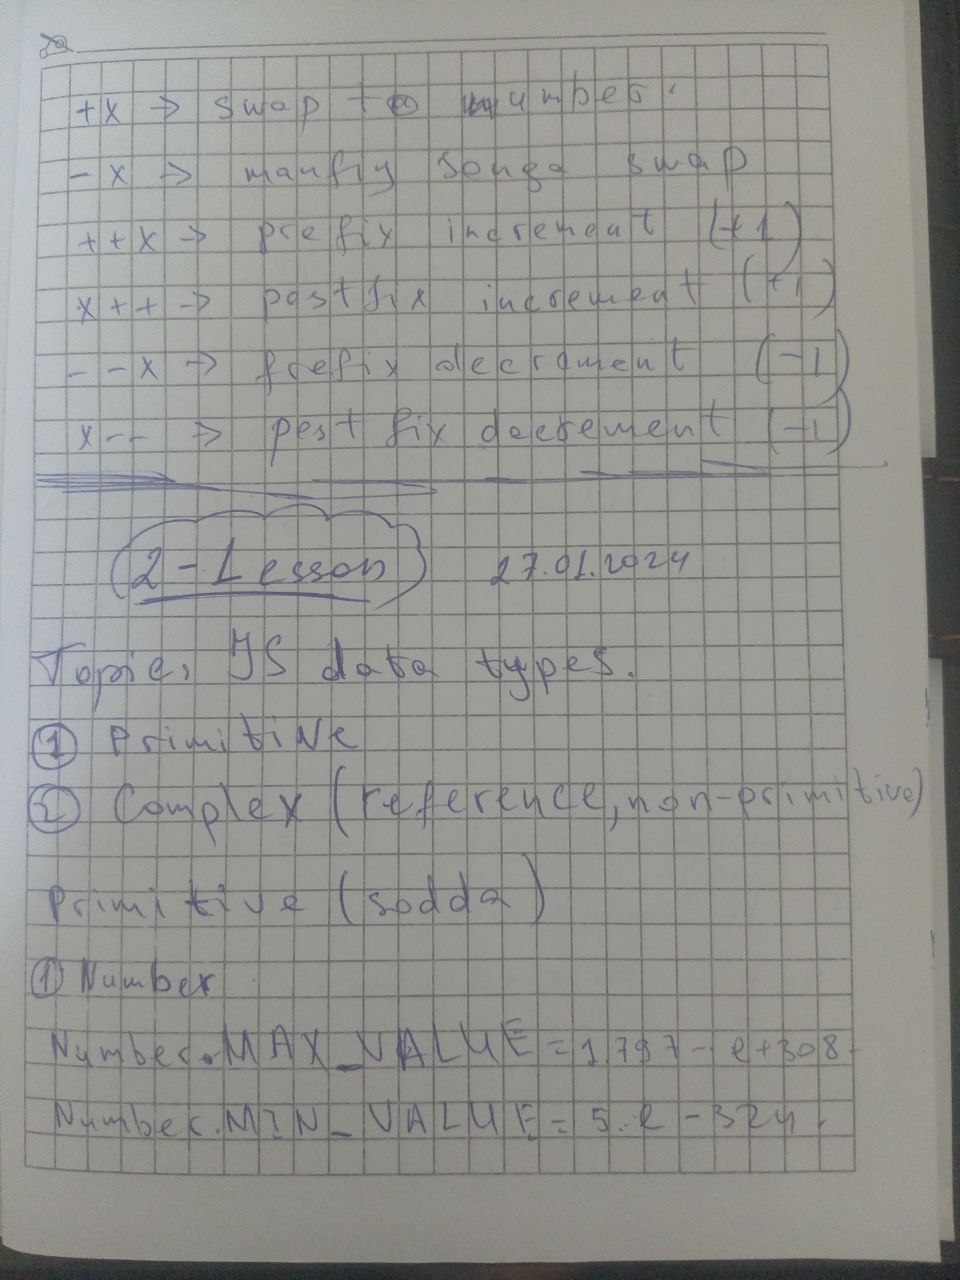 +x -> swap to number.
-x -> manfiy songa swap
++x -> prefix increment (+1)
x++ -> postfix increment (+1)
--x -> prefix decrement (-1)
x-- -> post fix decrement (-1)
2-Lesson 27.01.2024
Topic: JS data types.
① Primitive
② Complex (reference, non-primitive)
Primitive (sodda)
① Number
Number.MAX_VALUE = 1.797-e+308.
Number.MIN_VALUE = 5.e-324.